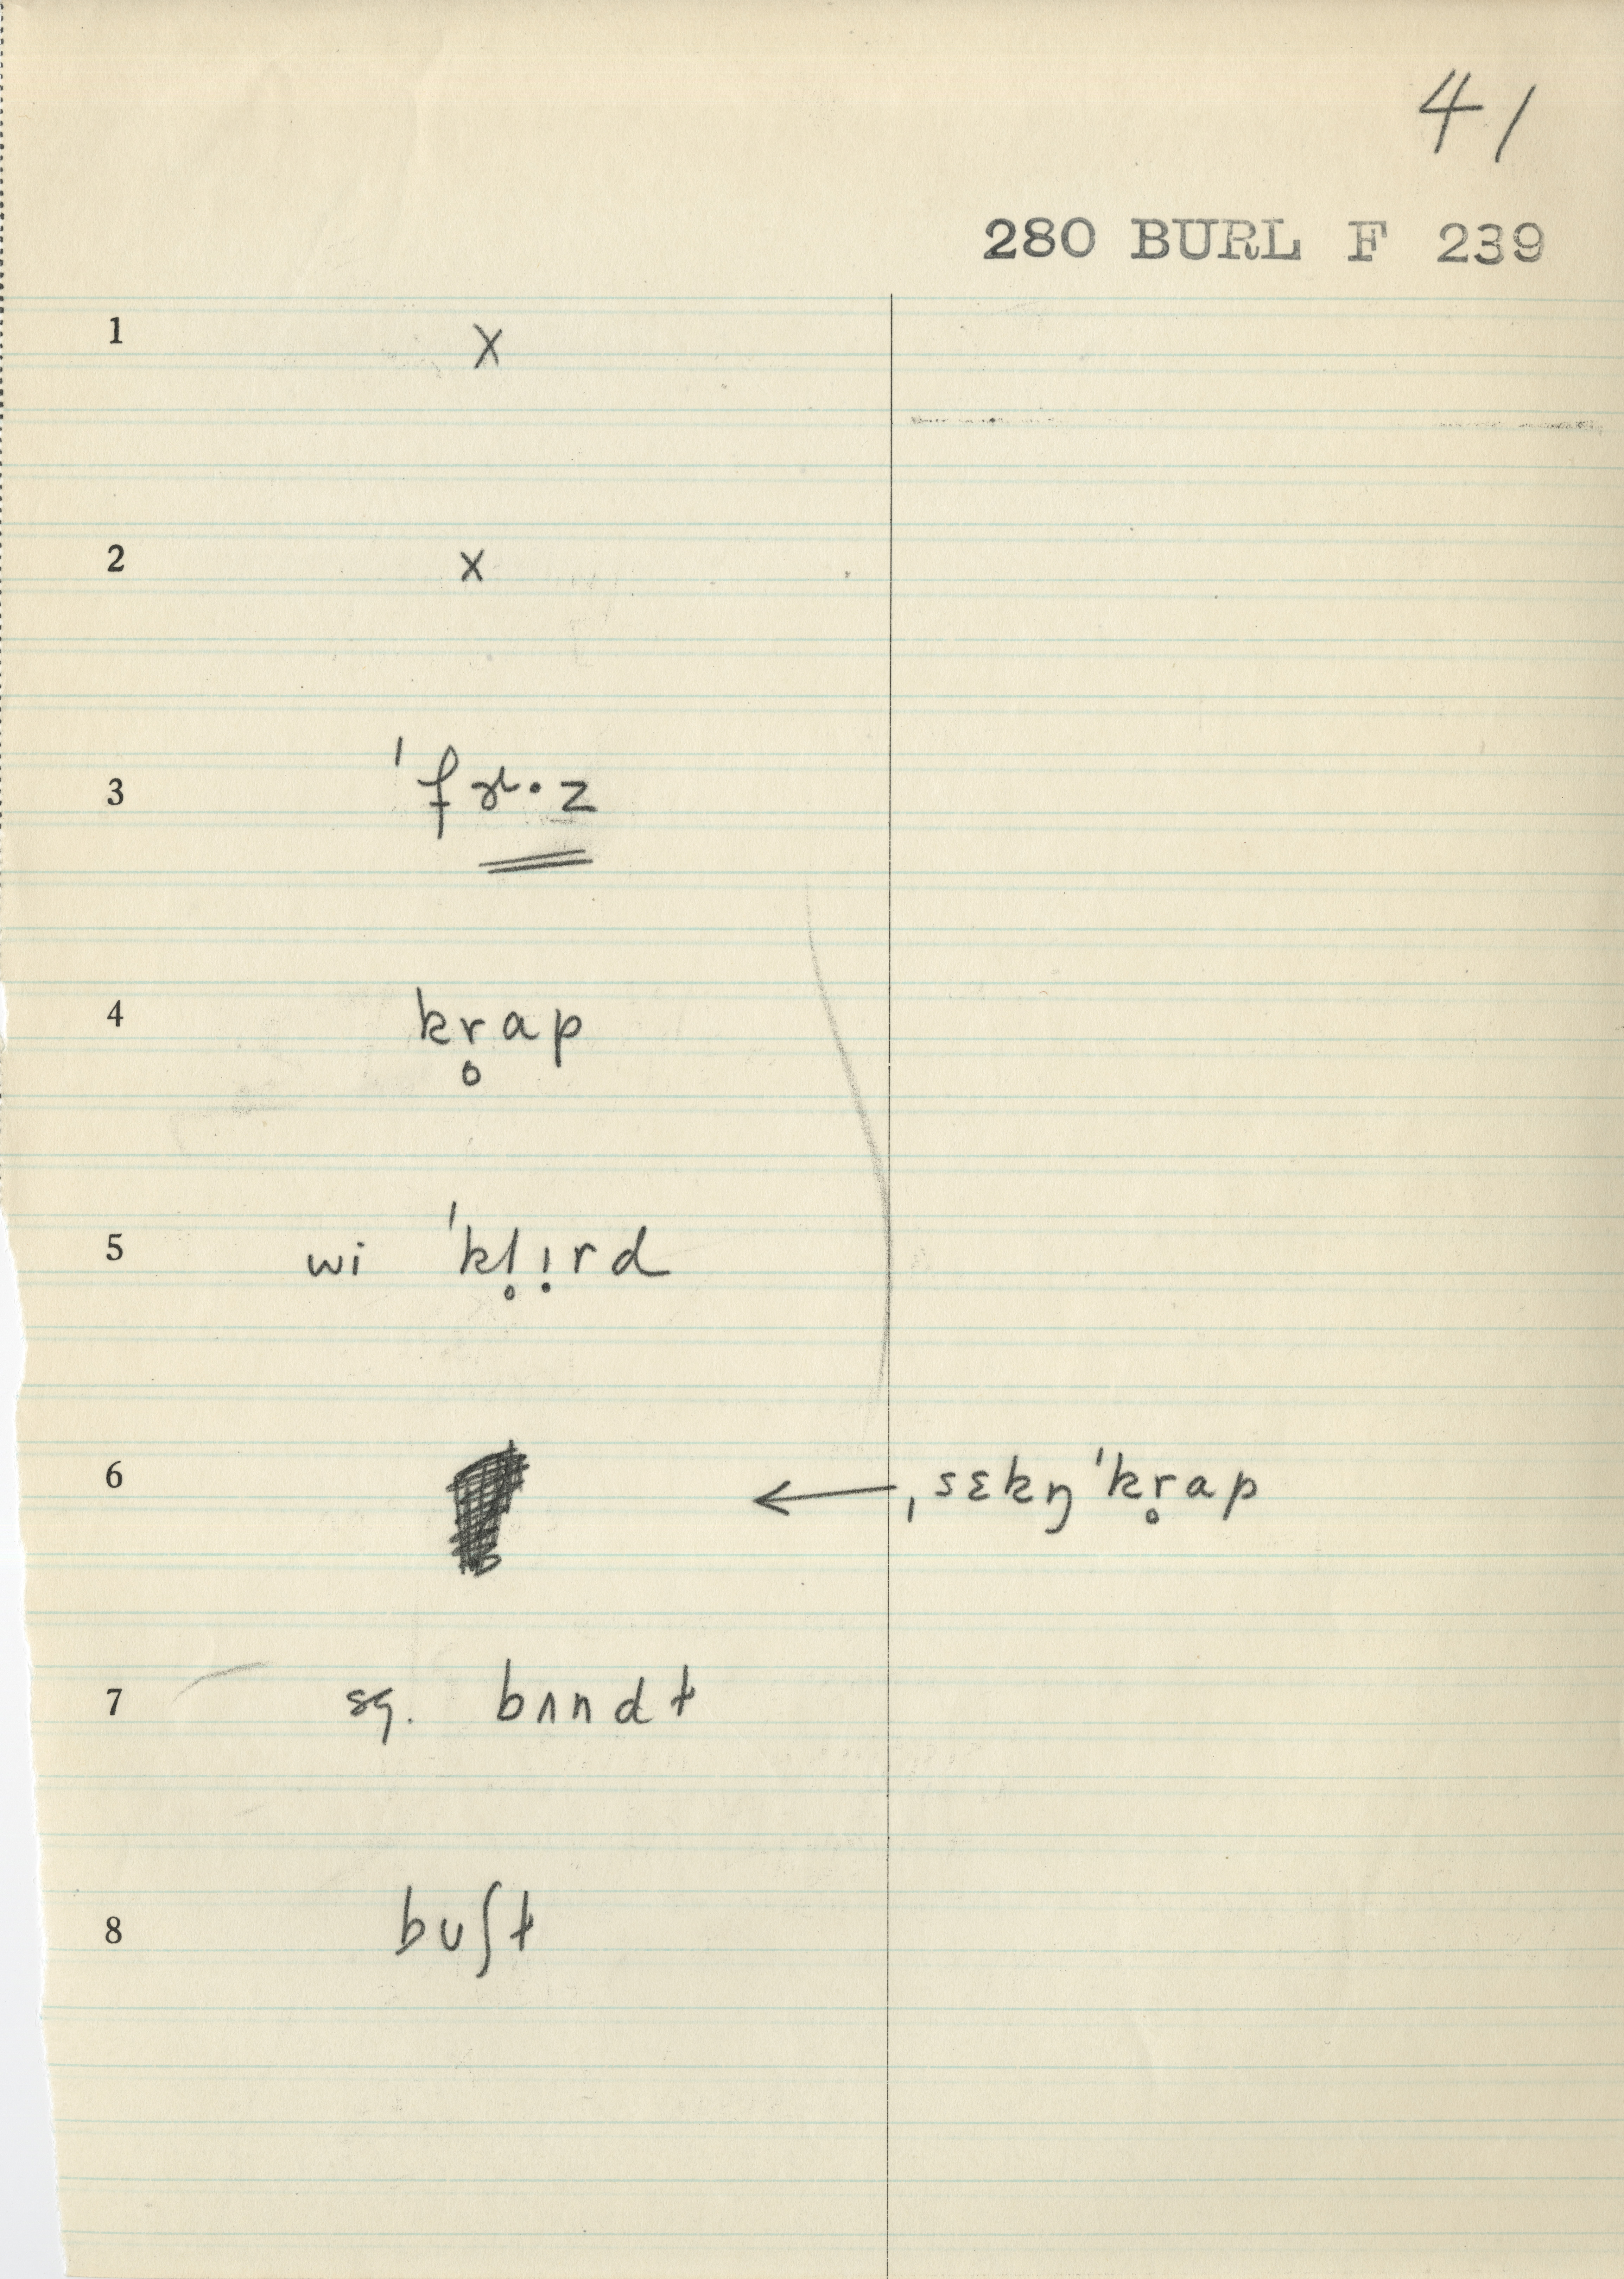 41
280 BURL F 239
1 x
2 x
3 ˈfɝ·z
4 kr̥ap
5 wi ˈkl̥ị rd
6 ← ˌsɛkŋ̍ˈkr̥ap
7 sq. bʌndt
8 buʃt